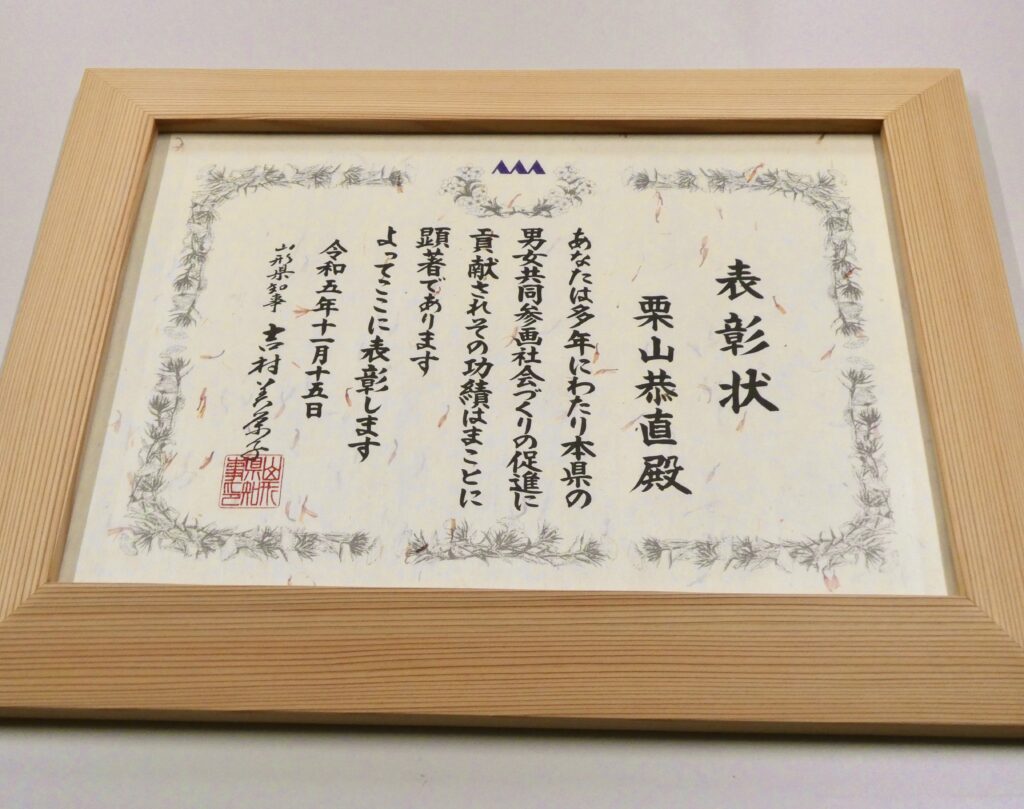 表彰状
栗山恭直殿
あなたは多年にわたり本県の
男女共同参画社会づくりの促進に
貢献されその功績はまことに
顕著であります
よってここに表彰します
令和五年十一月十五日
山形県知事 吉村美栄子
山形県知事印